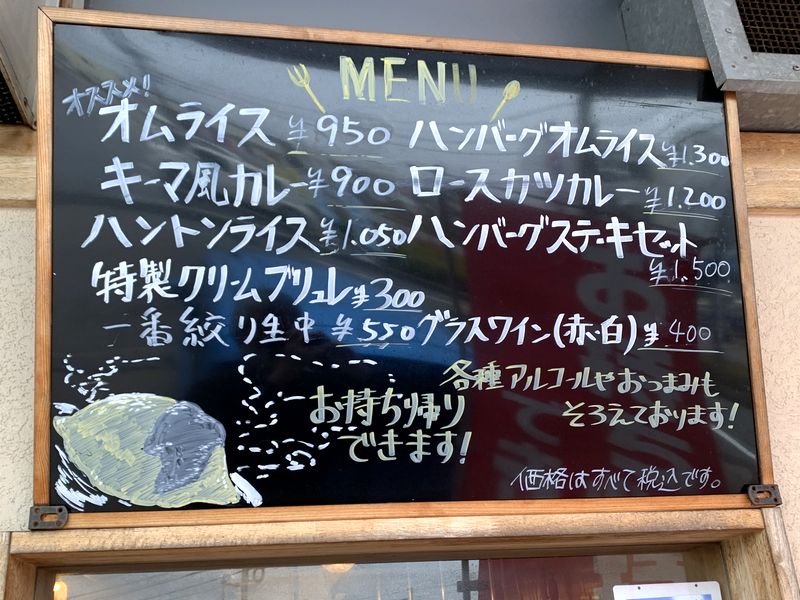 MENU
オススメ!
オムライス ¥950
ハンバーグオムライス ¥1.300
キーマ風カレー ¥900
ロースカツカレー ¥1.200
ハントンライス ¥1.050
ハンバーグステーキセット ¥1.500
特製クリームブリュレ ¥300
一番絞り生中 ¥550
グラスワイン(赤・白) ¥400
お持ち帰り
できます!
各種アルコールやおつまみも
そろえております!
価格はすべて税込です。